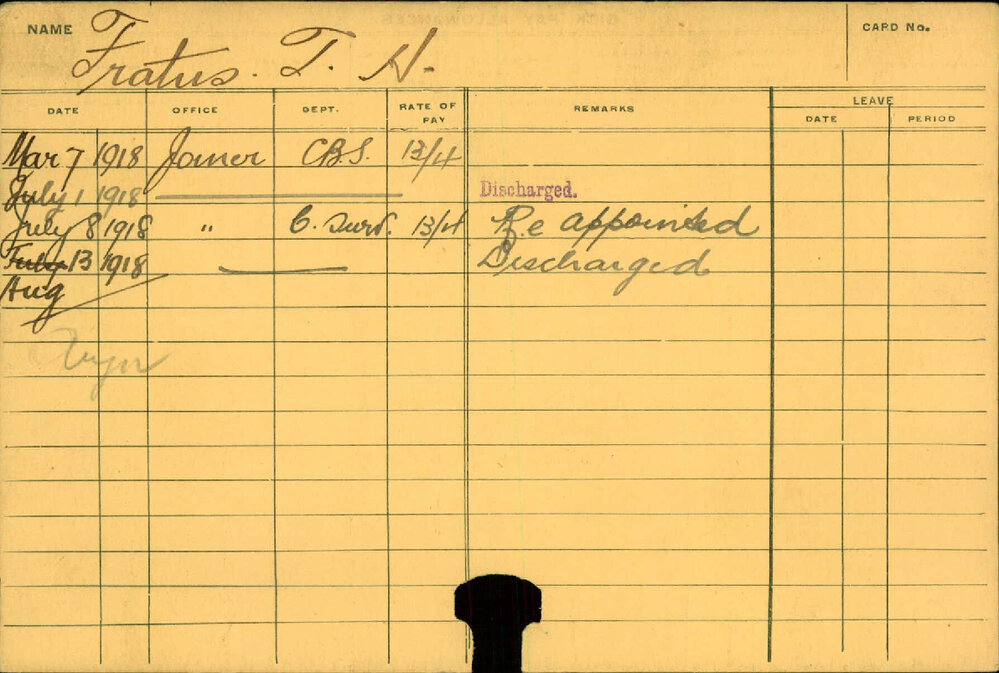 NAME Fratus. T. H. CARD No.
DATE OFFICE DEPT. RATE OF PAY REMARKS LEAVE
DATE PERIOD
Mar 7 1918 Joiner C.B.S. 13/4
July 1 1918 Discharged.
July 8 1918 " C. Surv. 13/4 Re appointed
July 13 1918 Discharged
Aug